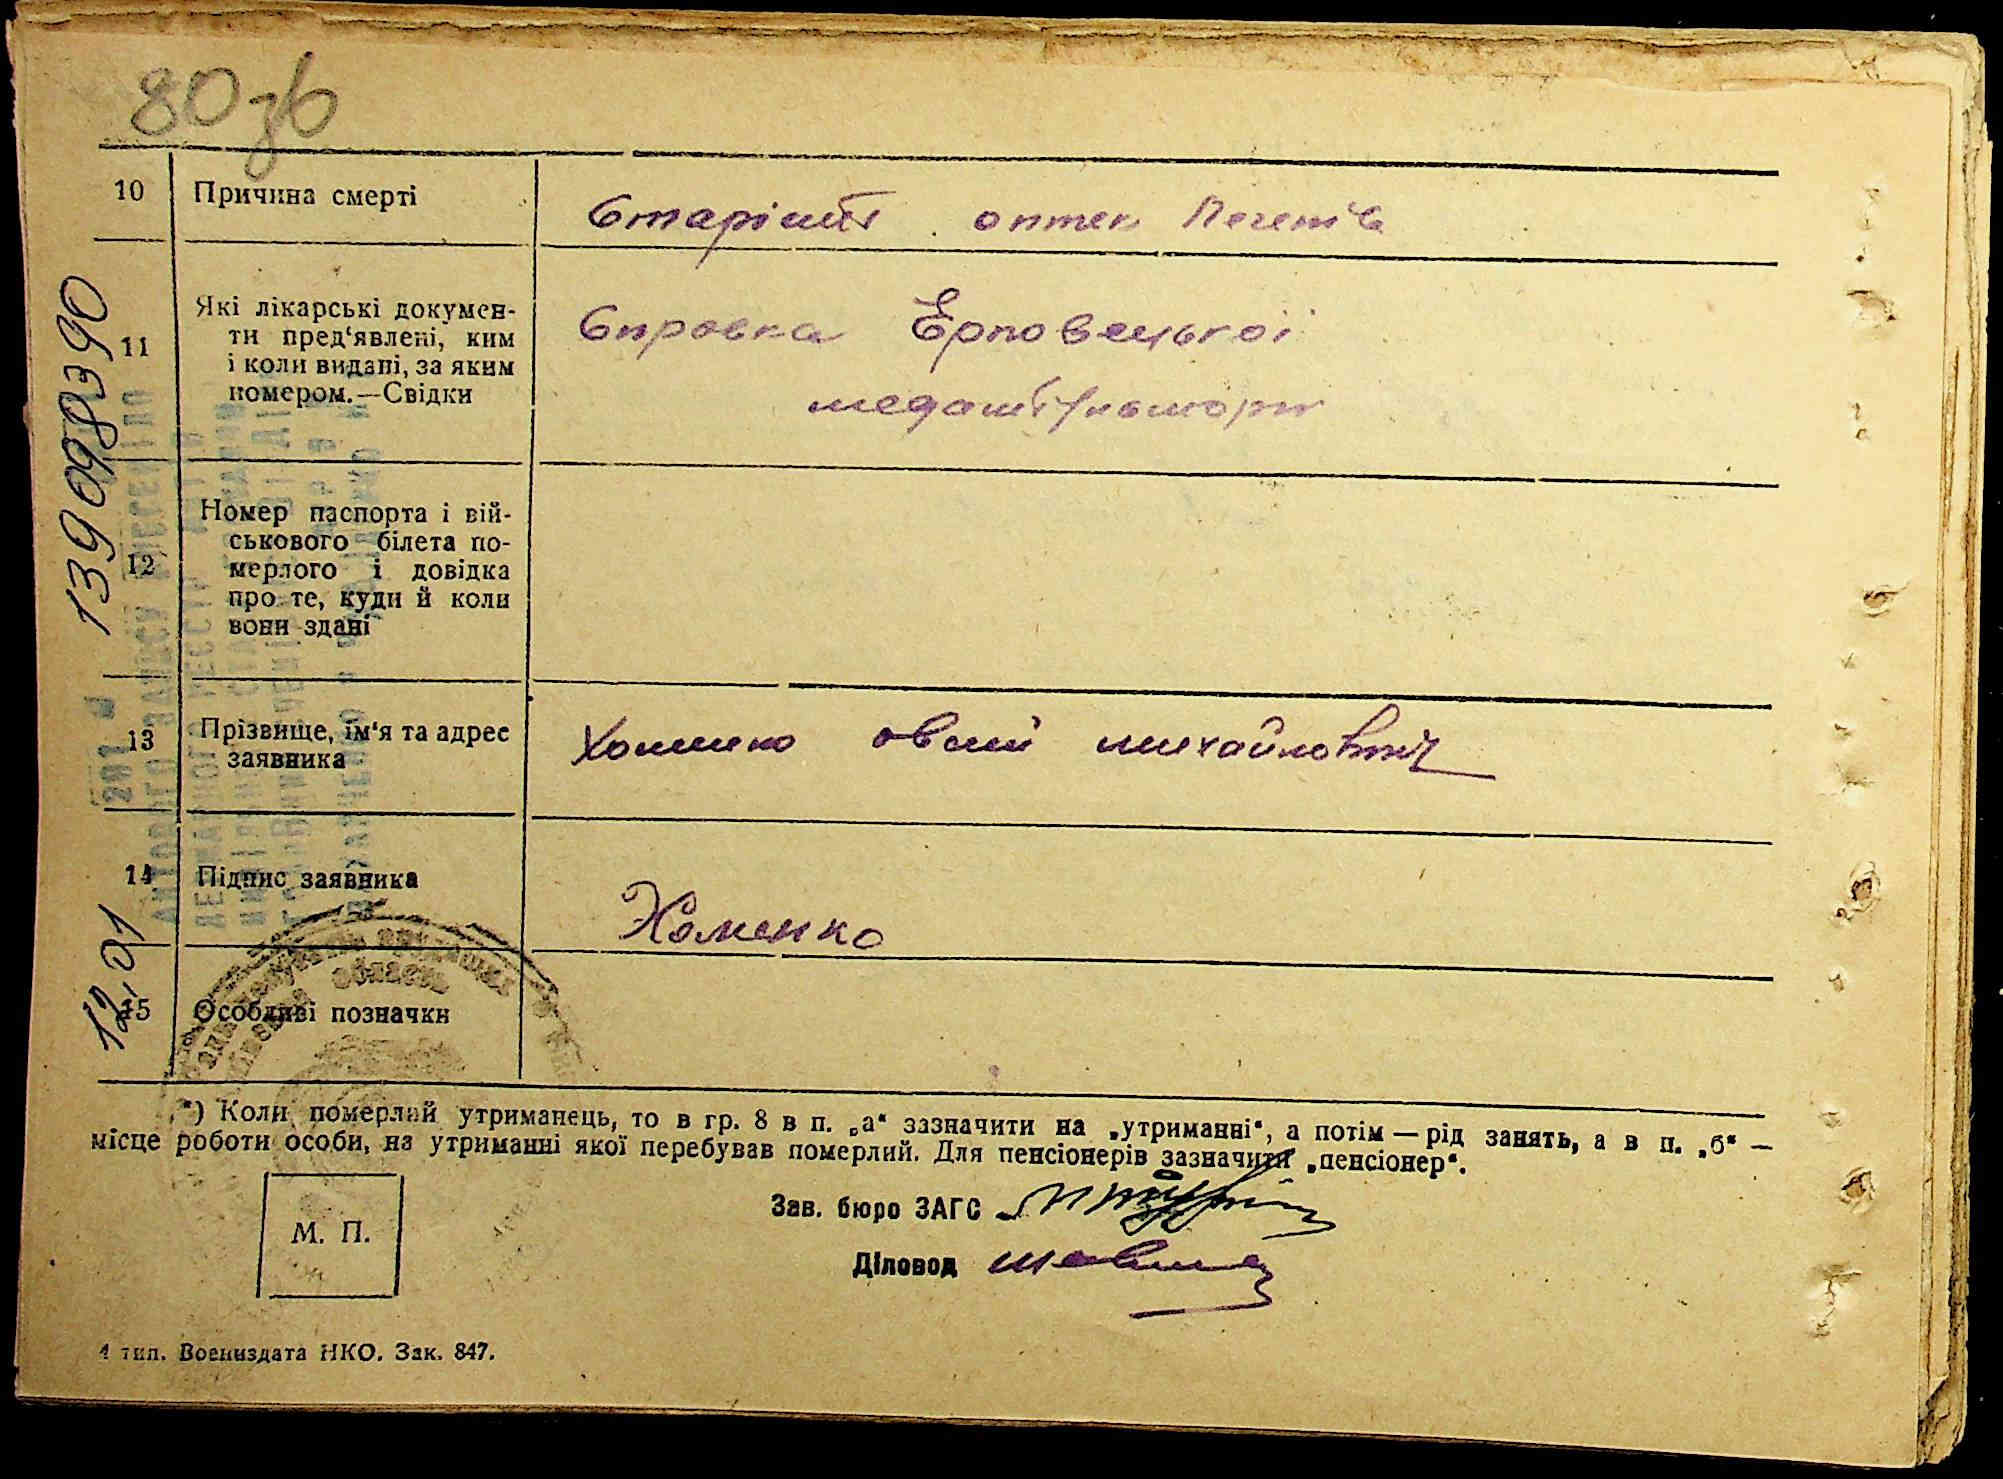 80 зв
10 Причина смерті
Старість оптек Легенів
11 Які лікарські докумен-
ти пред‘явлені, ким
і коли видані, за яким
номером.—Свідки
Справка
медамбулаторії
12 Номер паспорта і вій-
ськового білета по-
мерлого і довідка
про те, куди й коли
вони здані
13 Прізвище, ім‘я та адрес
заявника
Хоменко овсій михайлович
14 Підпис заявника
Хоменко
15 Особливі позначки
139098390
12,01
*) Коли померлий утриманець, то в гр. 8 в п. „а“ зазначити на „утриманні“, а потім — рід занять, а в п. „б“ —
місце роботи особи, на утриманні якої перебував померлий. Для пенсіонерів зазначити „пенсіонер“.
Зав. бюро ЗАГС
Діловод
М. П.
4 тип. Воениздата НКО. Зак. 847.